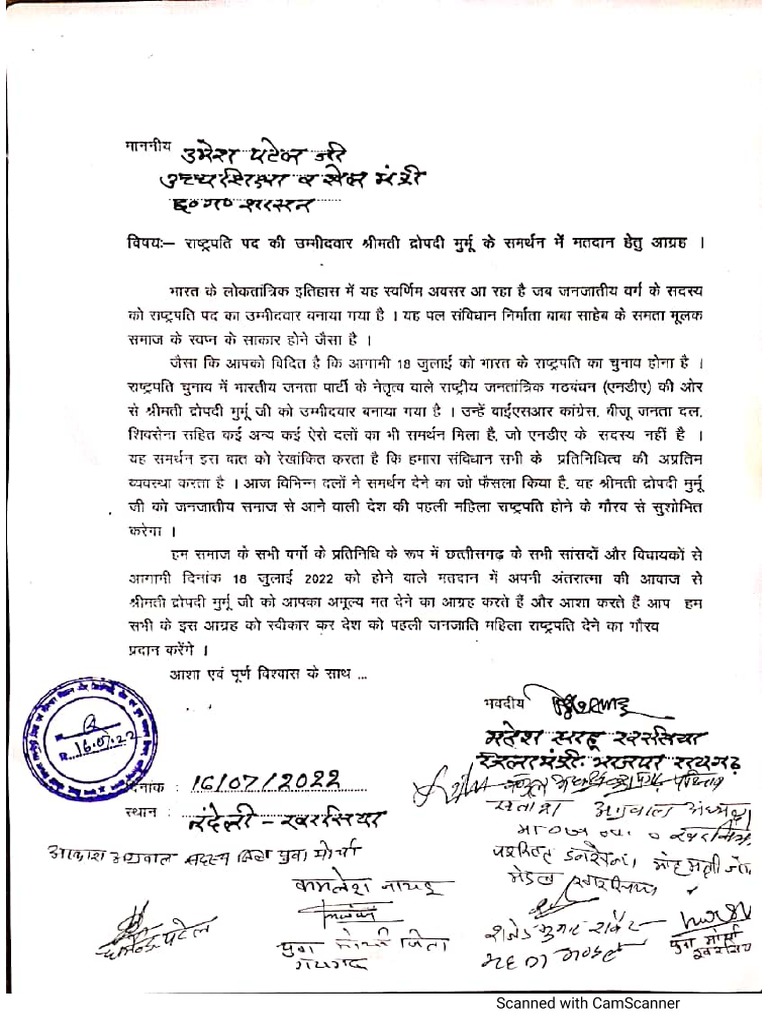 माननीय उमेश पटेल जी
उच्च शिक्षा व खेल मंत्री
छ०ग० शासन
विषयः– राष्ट्रपति पद की उम्मीदवार श्रीमती द्रोपदी मुर्मू के समर्थन में मतदान हेतु आग्रह ।
भारत के लोकतांत्रिक इतिहास में यह स्वर्णिम अवसर आ रहा है जब जनजातीय वर्ग के सदस्य
को राष्ट्रपति पद का उम्मीदवार बनाया गया है । यह पल संविधान निर्माता बाबा साहेब के समता मूलक
समाज के स्वप्न के साकार होने जैसा है ।
जैसा कि आपको विदित है कि आगामी 18 जुलाई को भारत के राष्ट्रपति का चुनाव होना है ।
राष्ट्रपति चुनाव में भारतीय जनता पार्टी के नेतृत्व वाले राष्ट्रीय जनतांत्रिक गठबंधन (एनडीए) की ओर
से श्रीमती द्रोपदी मुर्मू जी को उम्मीदवार बनाया गया है । उन्हें वाईएसआर कांग्रेस, बीजू जनता दल,
शिवसेना सहित कई अन्य कई ऐसे दलों का भी समर्थन मिला है, जो एनडीए के सदस्य नहीं है ।
यह समर्थन इस बात को रेखांकित करता है कि हमारा संविधान सभी के प्रतिनिधित्व की अप्रतिम
व्यवस्था करता है । आज विभिन्न दलों ने समर्थन देने का जो फैसला किया है, यह श्रीमती द्रोपदी मुर्मू
जी को जनजातीय समाज से आने वाली देश की पहली महिला राष्ट्रपति होने के गौरव से सुशोभित
करेगा ।
हम समाज के सभी वर्गो के प्रतिनिधि के रूप में छत्तीसगढ़ के सभी सांसदों और विधायकों से
आगामी दिनांक 18 जुलाई 2022 को होने वाले मतदान में अपनी अंतरात्मा की आवाज से
श्रीमती द्रोपदी मुर्मू जी को आपका अमूल्य मत देने का आग्रह करते हैं और आशा करते हैं आप हम
सभी के इस आग्रह को स्वीकार कर देश को पहली जनजाति महिला राष्ट्रपति देने का गौरव
प्रदान करेंगे ।
आशा एवं पूर्ण विश्वास के साथ ...
भवदीय
महेश साहू खरसिया
जिला मंत्री भाजपा रायगढ़
16.07.22
दिनांक : 16/07/2022
स्थान : नंदेली - खरसिया
सतीश अग्रवाल अध्यक्ष
आकाश अग्रवाल सदस्य जिला युवा मोर्चा
कमलेश नायडू
युवा मोर्चा जिला
रायगढ़
धर्मेन्द्र पटेल
युवा मोर्चा
खरसिया
Scanned with CamScanner